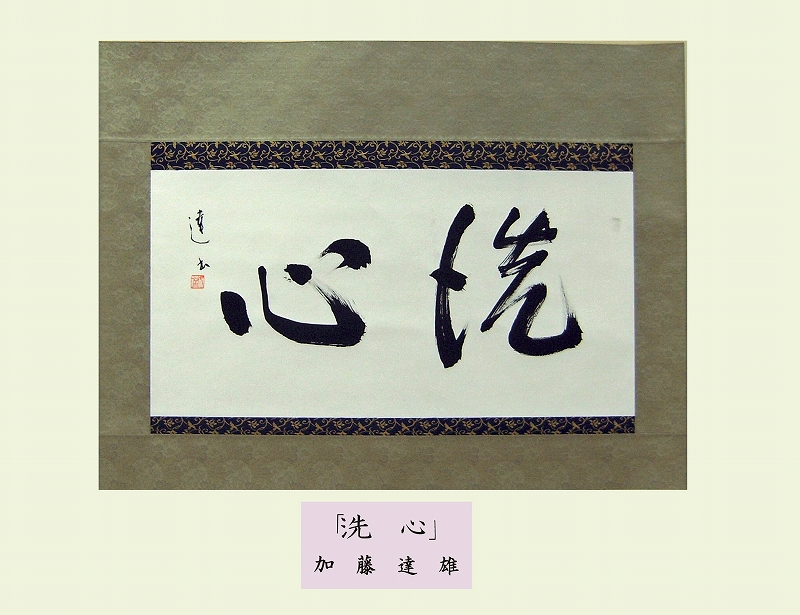 洗心
達書
「洗　心」
加　藤　達　雄